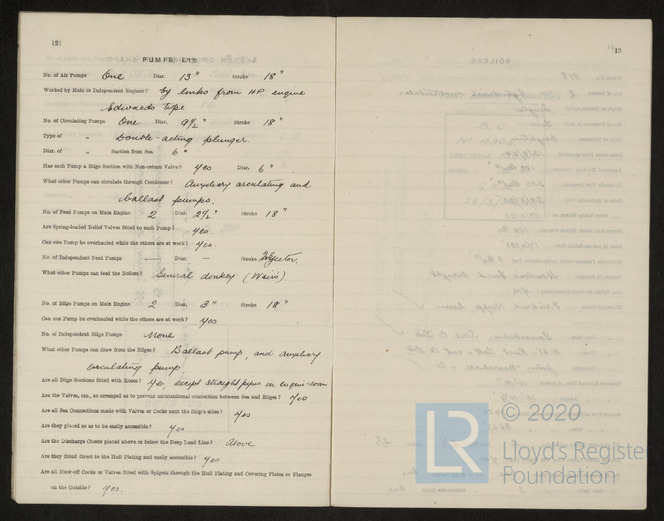 12
PUMPS, ETC.
No. of Air Pumps One Diar. 13" Stroke 18"
Worked by Main or Independent Engines? by links from HP engine
Edwards type
No. of Circulating Pumps One Diar. 9½" Stroke 18"
Type of " Double-acting plunger.
Diar. of " Suction from Sea 6"
Has each Pump a Bilge Suction with Non-return Valve? yes Diar. 6"
What other Pumps can circulate through Condenser? Auxiliary circulating and
ballast pumps.
No. of Feed Pumps on Main Engine 2 Diar. 2½" Stroke 18"
Are Spring-loaded Relief Valves fitted to each Pump? yes
Can one Pump be overhauled while the others are at work? yes.
No. of Independent Feed Pumps — Diar. — Stroke Injector.
What other Pumps can feed the Boilers? General donkey (Weirs)
No. of Bilge Pumps on Main Engine 2 Diar. 3" Stroke 18"
Can one Pump be overhauled while the others are at work? yes
No. of Independent Bilge Pumps None
What other Pumps can draw from the Bilges? Ballast pump, and auxiliary
circulating pump.
Are all Bilge Suctions fitted with Roses? Yes, except straight pipes in engine room
Are the Valves, etc., so arranged as to prevent unintentional connection between Sea and Bilges? Yes
Are all Sea Connections made with Valves or Cocks next the Ship's sides? yes
Are they placed so as to be easily accessible? yes
Are the Discharge Chests placed above or below the Deep Load Line? Above
Are they fitted direct to the Hull Plating and easily accessible? yes
Are all Blow-off Cocks or Valves fitted with Spigots through the Hull Plating and Covering Plates or Flanges
on the Outside? yes.
13
© 2020
LR
Lloyd's Register
Foundation